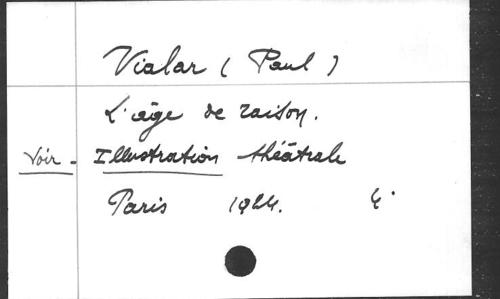 Vialar (Paul)
L'âge de raison.
Voir - Illustration théâtrale
Paris 1924. 4°